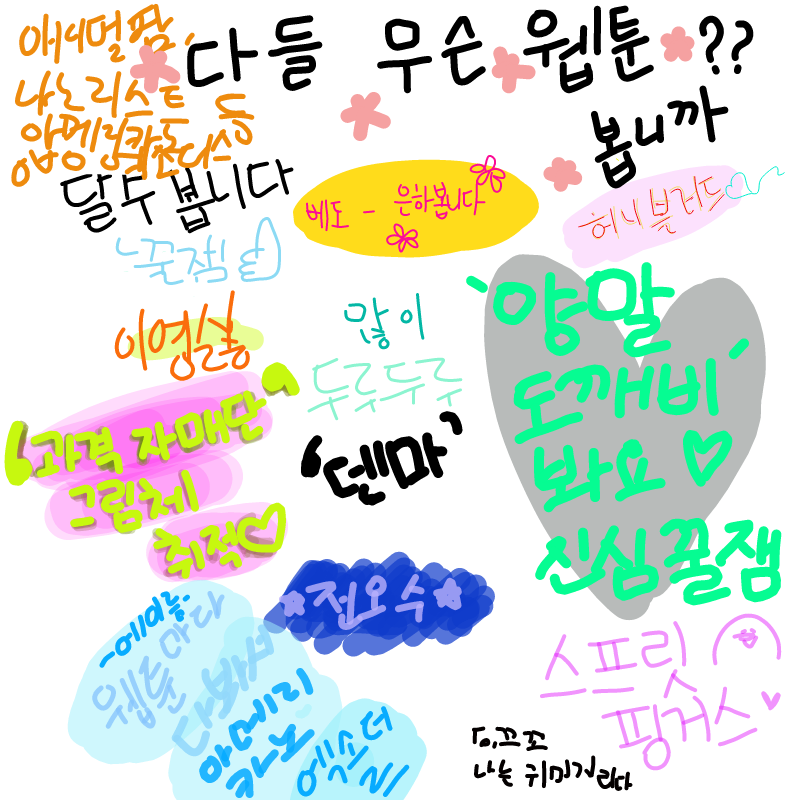 다들 무슨 웹툰??
봅니까
애니멀팜,
나노리스트 등
달두 봅니다
꿀잼
베도 - 은하봅니다
허니블러드
이영실
많이
두루두루
'양말
도깨비'
봐요♡
진심 꿀잼
'과격 자매단'
그림체
취적♡
'덴마'
전오수
-에이룸.
웹툰마다
다봐서
아메리
카노
엑소더
스프리
핑거스
나는 귀미거리다